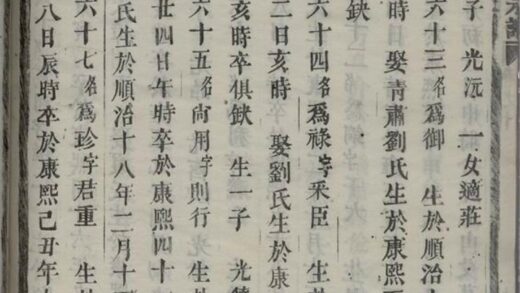 子 光沅 一女適莊
六十三名爲御 生於順治十
時日娶青蕭劉氏生於康熙
缺
六十四名爲祿字釆臣 生
二日亥時 娶劉氏生於康
亥時卒俱缺 生一子 光
六十五名尙用字則行 生
廿四日午時卒於康熙四十
氏生於順治十八年二月十
六十七名爲珍字君重 生
八日辰時卒於康熙己丑年